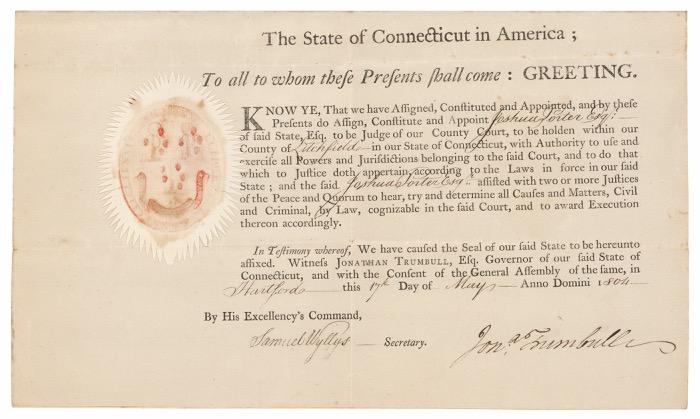 The State of Connecticut in America ;
To all to whom theſe Preſents ſhall come : GREETING.
KNOW YE, That we have Aſſigned, Conſtituted and Appointed, and by theſe
Preſents do Aſſign, Conſtitute and Appoint Joshua Porter Esqr
of ſaid State, Eſq. to be Judge of our County Court, to be holden within our
County of Litchfield in our State of Connecticut, with Authority to uſe and
exerciſe all Powers and Juriſdictions belonging to the ſaid Court, and to do that
which to Juſtice doth appertain according to the Laws in force in our ſaid
State ; and the ſaid Joshua Porter Esqr aſſiſted with two or more Juſtices
of the Peace and Quorum to hear, try and determine all Cauſes and Matters, Civil
and Criminal, by Law, cognizable in the ſaid Court, and to award Execution
thereon accordingly.
In Teſtimony whereof, We have cauſed the Seal of our ſaid State to be hereunto
affixed. Witneſs JONATHAN TRUMBULL, Eſq. Governor of our ſaid State of
Connecticut, and with the Conſent of the General Aſſembly of the ſame, in
Hartford this 17th Day of May Anno Domini 1804
By His Excellency's Command,
Samuel Wyllys Secretary.
Jonas Trumbull